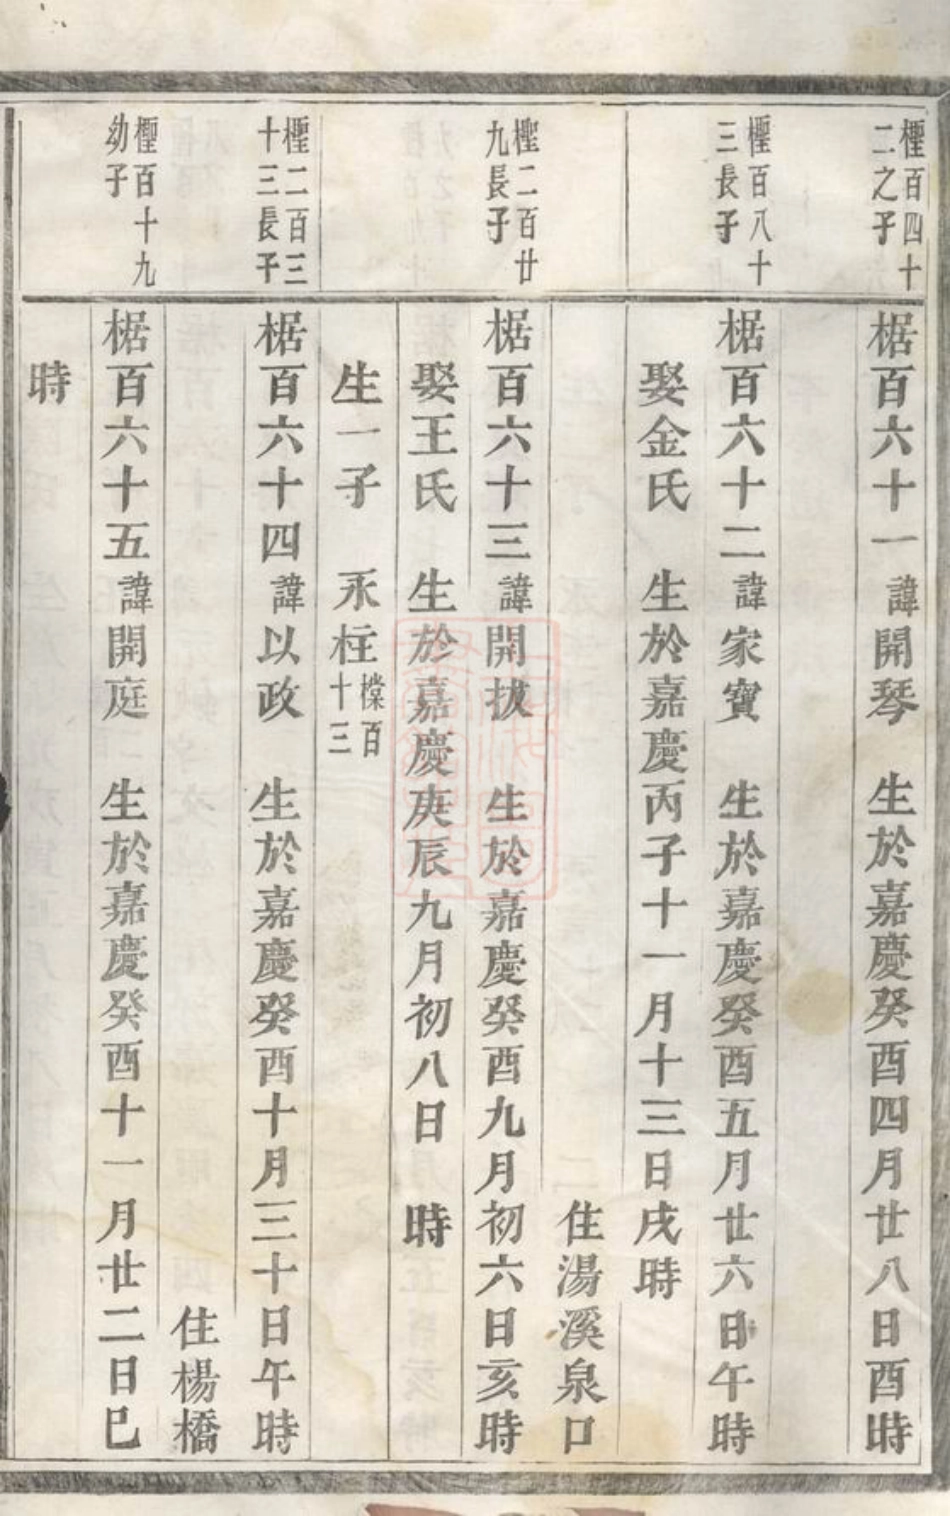 檉百四十
二之子
椐百六十一諱開琴 生於嘉慶癸酉四月廿八日酉時
檉百八十
三長子
椐百六十二諱家寶 生於嘉慶癸酉五月廿六日午時
娶金氏 生於嘉慶丙子十一月十三日戌時
住湯溪泉口
檉二百廿
九長子
椐百六十三諱開拔 生於嘉慶癸酉九月初六日亥時
娶王氏 生於嘉慶庚辰九月初八日 時
生一子 永柱檏百
十三
檉二百三
十三長子
椐百六十四諱以政 生於嘉慶癸酉十月三十日午時
住楊橋
檉百十九
幼子
椐百六十五諱開庭 生於嘉慶癸酉十一月廿二日巳
時